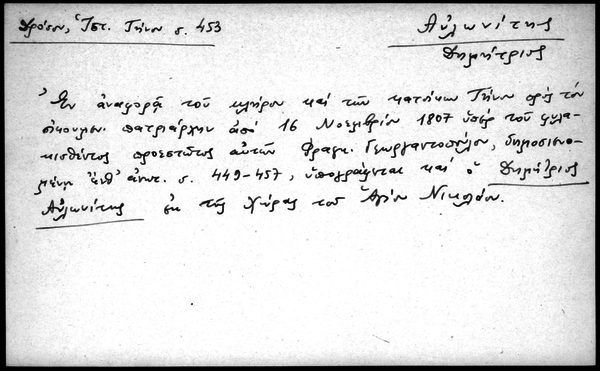 Δρόσου, Ἱστ. Τήνου σ. 453
Αὐλωνίτης
Δημήτριος
Ἐν ἀναφορᾷ τοῦ κλήρου καὶ τῶν κατοίκων Τήνου πρὸς τὸν
οἰκουμεν. πατριάρχην ἀπὸ 16 Νοεμβρίου 1807 ὑπὲρ τοῦ φυλα-
κισθέντος προεστῶτος αὐτῶν Φραγκ. Γεωργαντοπούλου, δημοσιευο-
μένῃ ἔνθ' ἀνωτ. σ. 449-457, ὑπογράφεται καὶ ὁ Δημήτριος
Αὐλωνίτης ἐκ τῆς Χώρας τοῦ Ἁγίου Νικολάου.